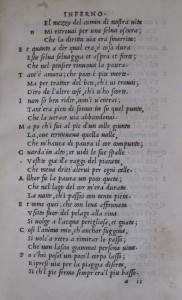 INFERNO.
EL mezzo del camin di nostra vita
N Mi ritrovai per una selva oscura
Che la diritta via era smarrita:
E t quanto a dir qual era, è cosa dura
Esta selva selvaggia et aspra et forte,
Che nel pensier rinova la paura.
T ant'è amara; che poco è piu morte.
Ma per trattar del ben, ch'i vi trovai;
Diro de l'altre cose, ch'i v'ho scorte.
I non so ben ridir, com'i v'entrai;
Tant'era pien di sonno in su quel punto,
Che la verace via abbandonai.
M a po ch'i fui al pie d'un colle giunto
La, ove terminava quella valle,
Che m'havea di paura il cor compunto;
G uarda'in alto; et vidi le sue spalle
Vestite gia de raggi del pianeta;
Che mena dritt'altrui per ogni calle.
A llhor fu la paura un poco queta;
Che nel lago del cor m'era durata
La notte, ch'i passai con tanta pieta.
E t come quei, che con lena affannata
Uscito fuor del pelago alla riva
Si volge a l'acqua perigliosa, et guata;
C osi l'animo mio, ch'anchor fuggiva,
Si volse a retro a rimirar lo passo;
Che non lascio giamai persona viva.
P oi c'hei posat'un poco'l corpo lasso
Ripresi via per la piaggia diserta,
Si che'l pie fermo sempr'era'l piu basso.
a ii